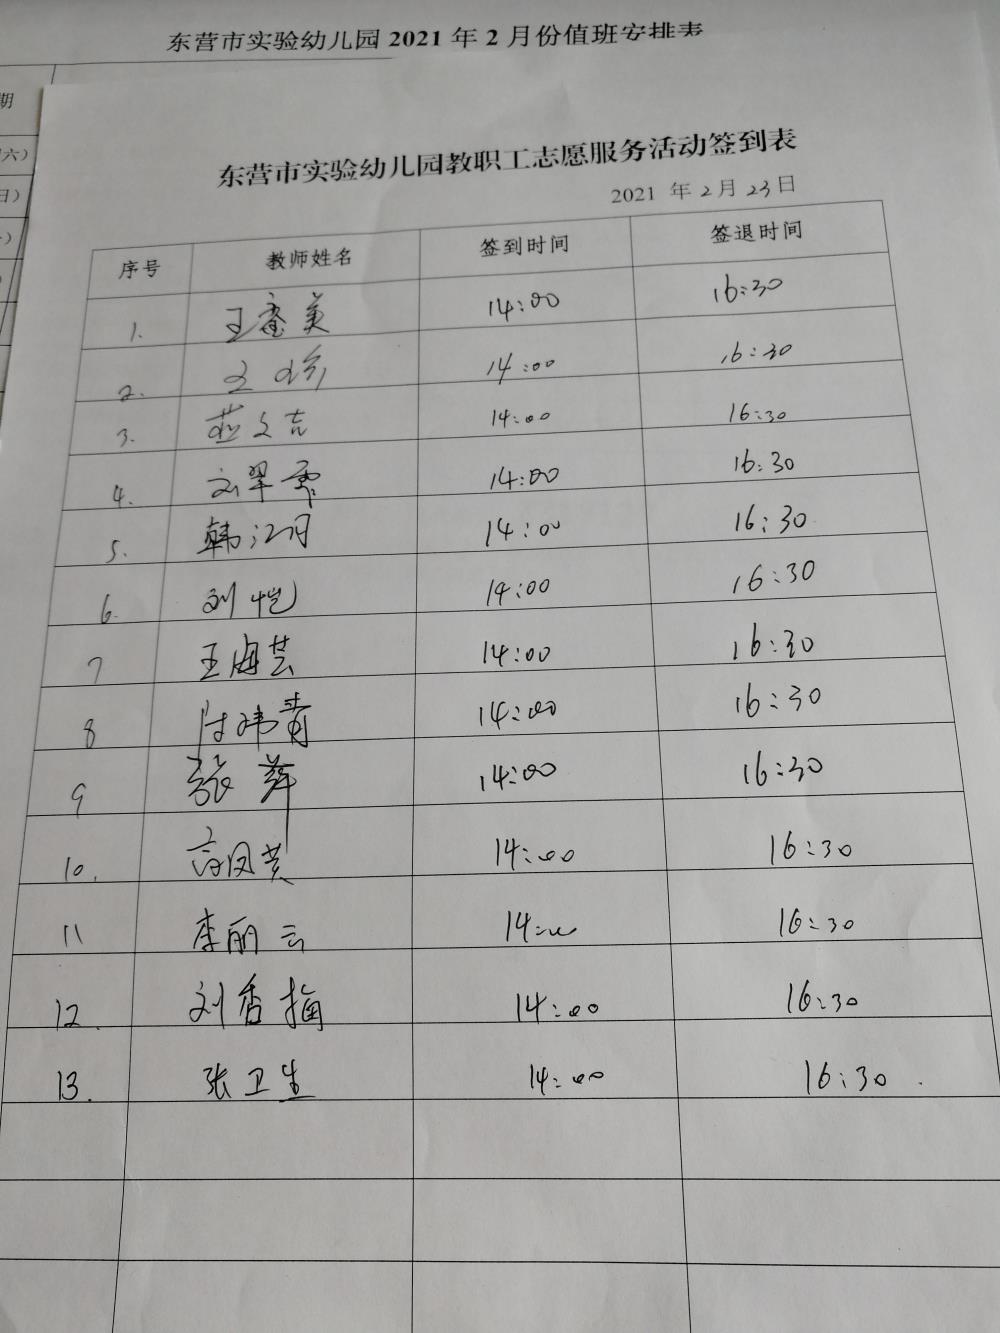 东营市实验幼儿园 2021 年 2 月份值班安排表
期
六）
日）
东营市实验幼儿园教职工志愿服务活动签到表
2021 年 2 月 23 日
序号 教师姓名 签到时间 签退时间
1. 王 美 14:00 16:30
2. 14:00 16:30
3. 文吉 14:00 16:30
4. 刘翠霞 14:00 16:30
5. 韩江月 14:00 16:30
6. 刘恺 14:00 16:30
7 王海芸 14:00 16:30
8 付玮青 14:00 16:30
9 张萍 14:00 16:30
10. 高凤英 14:00 16:30
11 李丽云 14:00 16:30
12. 刘香梅 14:00 16:30
13. 张卫生 14:00 16:30